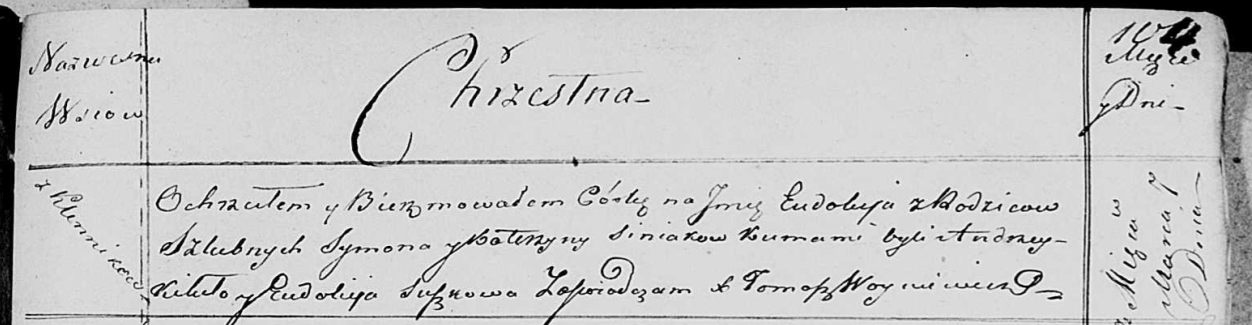 Nazwiska
Wsiow
Chrzestna
104
Mięsc
y Dni
z Klennikow
Ochrzciłem y Bierzmowałem Córkę na Jmię Eudokija z Rodzicow
Szlubnych Symona y Kateryny Siniakow Kumami byli Andrzey
Kikiło y Eudokija Suszkowa Zaświadczam X Tomasz Woyniewicz P
Mięsca
Marca 7
Dnia